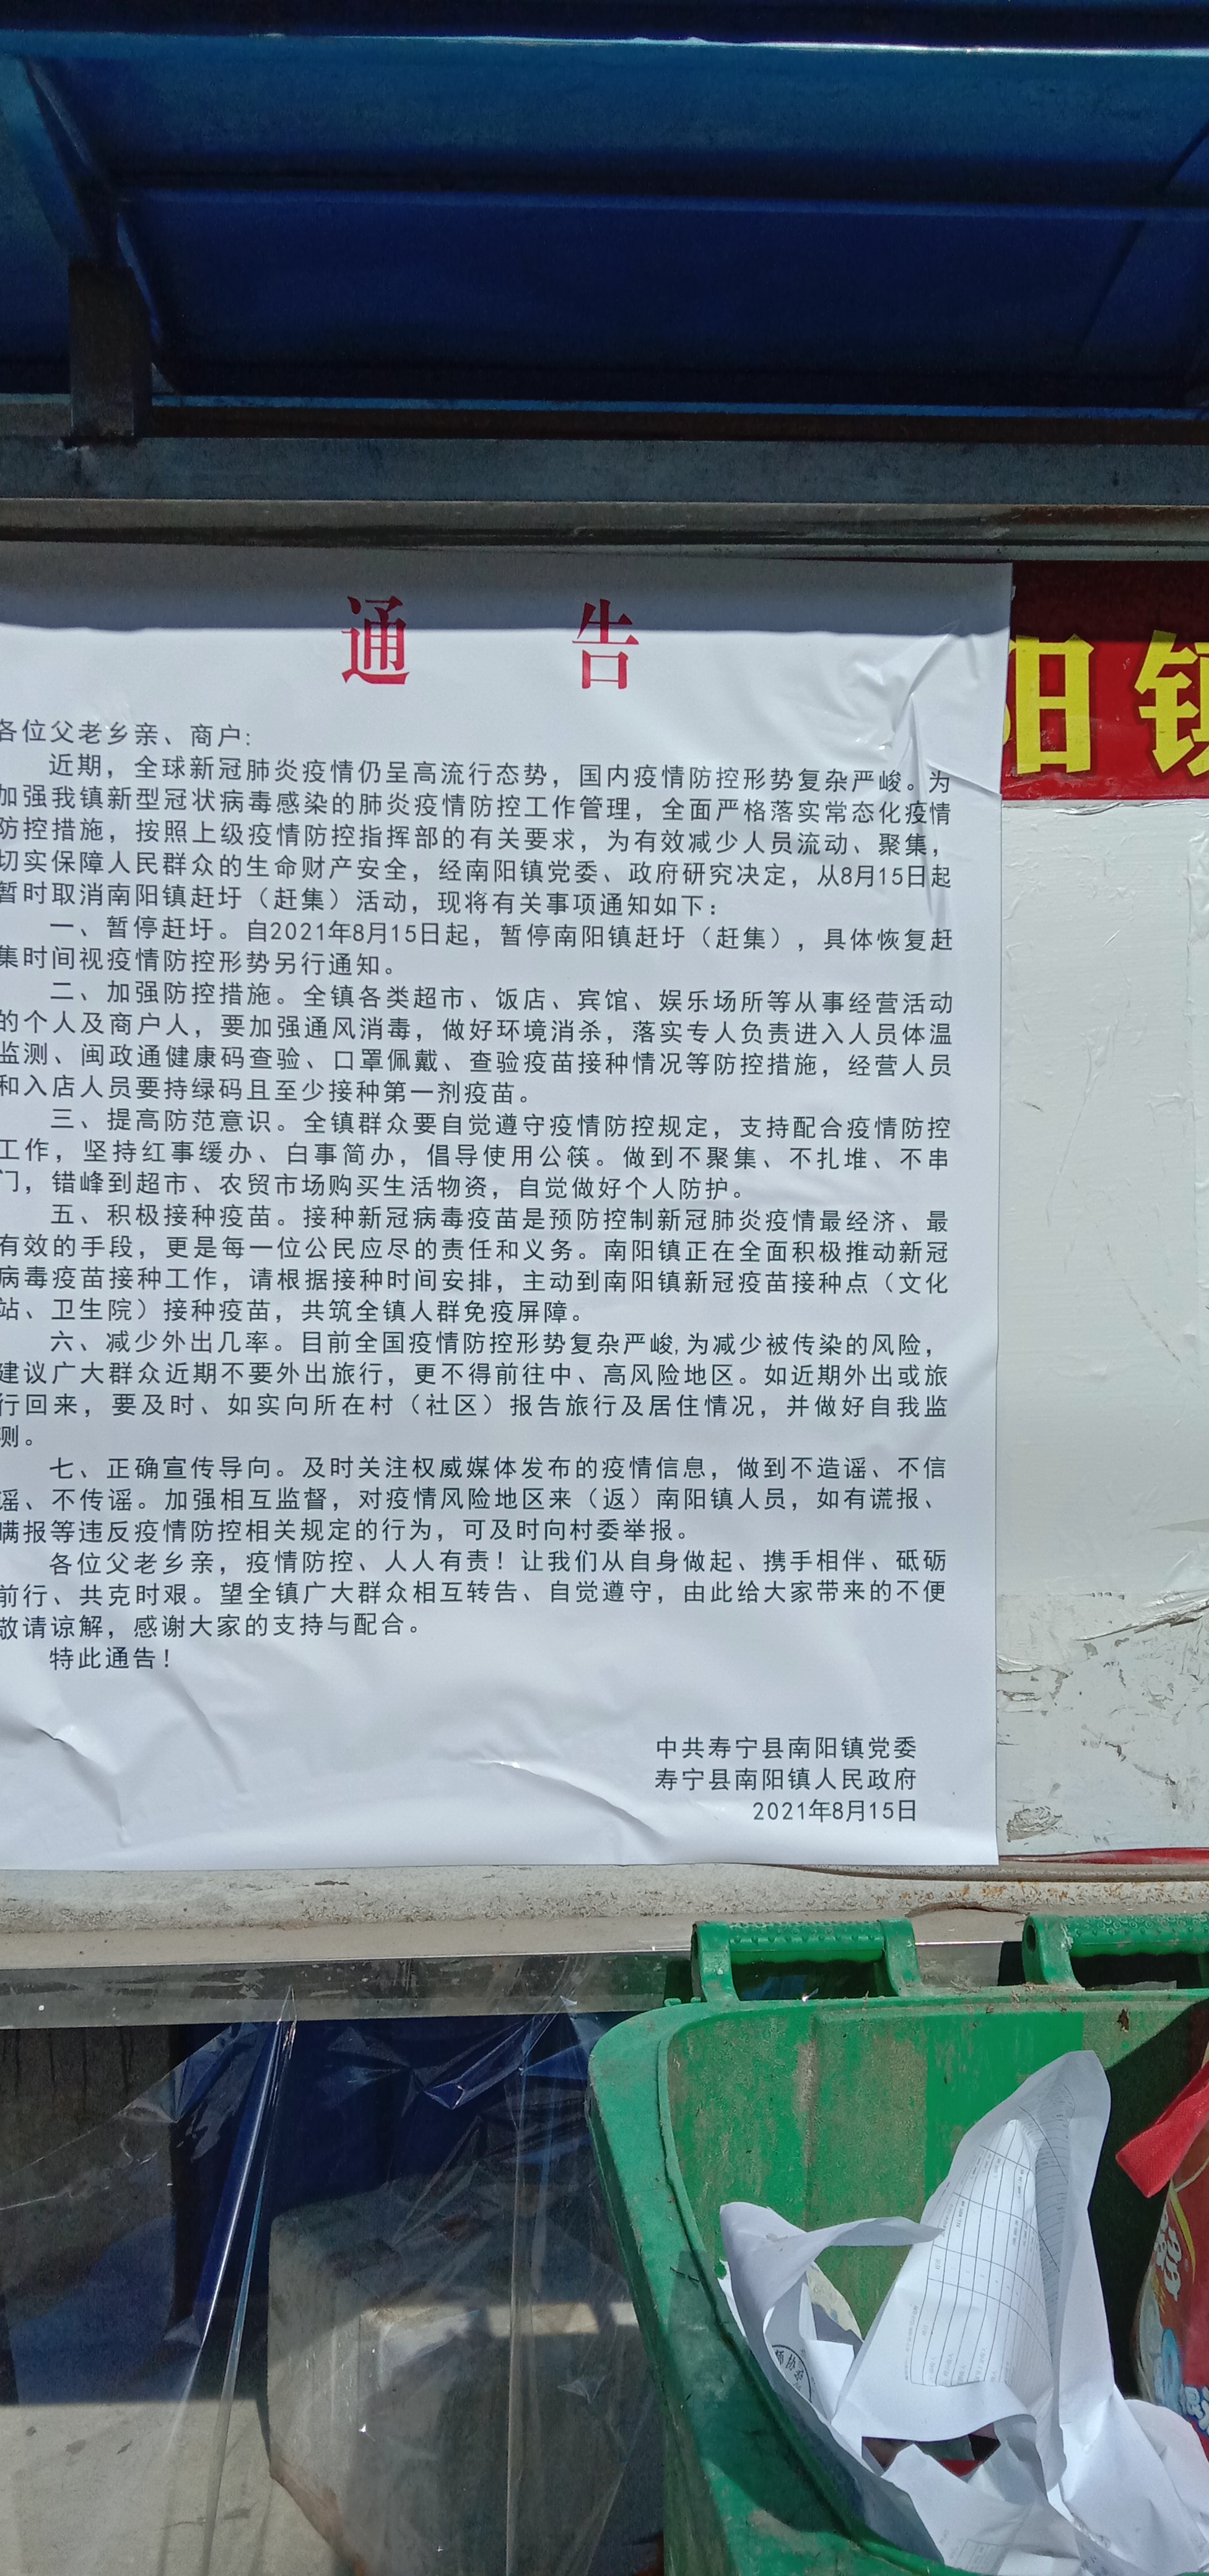 通告
各位父老乡亲、商户:
近期，全球新冠肺炎疫情仍呈高流行态势，国内疫情防控形势复杂严峻。为
加强我镇新型冠状病毒感染的肺炎疫情防控工作管理，全面严格落实常态化疫情
防控措施，按照上级疫情防控指挥部的有关要求，为有效减少人员流动、聚集，
切实保障人民群众的生命财产安全，经南阳镇党委、政府研究决定，从8月15日起
暂时取消南阳镇赶圩（赶集）活动，现将有关事项通知如下：
一、暂停赶圩。自2021年8月15日起，暂停南阳镇赶圩（赶集），具体恢复赶
集时间视疫情防控形势另行通知。
二、加强防控措施。全镇各类超市、饭店、宾馆、娱乐场所等从事经营活动
的个人及商户人，要加强通风消毒，做好环境消杀，落实专人负责进入人员体温
监测、闽政通健康码查验、口罩佩戴、查验疫苗接种情况等防控措施，经营人员
和入店人员要持绿码且至少接种第一剂疫苗。
三、提高防范意识。全镇群众要自觉遵守疫情防控规定，支持配合疫情防控
工作，坚持红事缓办、白事简办，倡导使用公筷。做到不聚集、不扎堆、不串
门，错峰到超市、农贸市场购买生活物资，自觉做好个人防护。
五、积极接种疫苗。接种新冠病毒疫苗是预防控制新冠肺炎疫情最经济、最
有效的手段，更是每一位公民应尽的责任和义务。南阳镇正在全面积极推动新冠
病毒疫苗接种工作，请根据接种时间安排，主动到南阳镇新冠疫苗接种点（文化
站、卫生院）接种疫苗，共筑全镇人群免疫屏障。
六、减少外出几率。目前全国疫情防控形势复杂严峻,为减少被传染的风险，
建议广大群众近期不要外出旅行，更不得前往中、高风险地区。如近期外出或旅
行回来，要及时、如实向所在村（社区）报告旅行及居住情况，并做好自我监
测。
七、正确宣传导向。及时关注权威媒体发布的疫情信息，做到不造谣、不信
谣、不传谣。加强相互监督，对疫情风险地区来（返）南阳镇人员，如有谎报、
瞒报等违反疫情防控相关规定的行为，可及时向村委举报。
各位父老乡亲，疫情防控、人人有责！让我们从自身做起、携手相伴、砥砺
前行、共克时艰。望全镇广大群众相互转告、自觉遵守，由此给大家带来的不便
敬请谅解，感谢大家的支持与配合。
特此通告！
中共寿宁县南阳镇党委
寿宁县南阳镇人民政府
2021年8月15日
阳镇